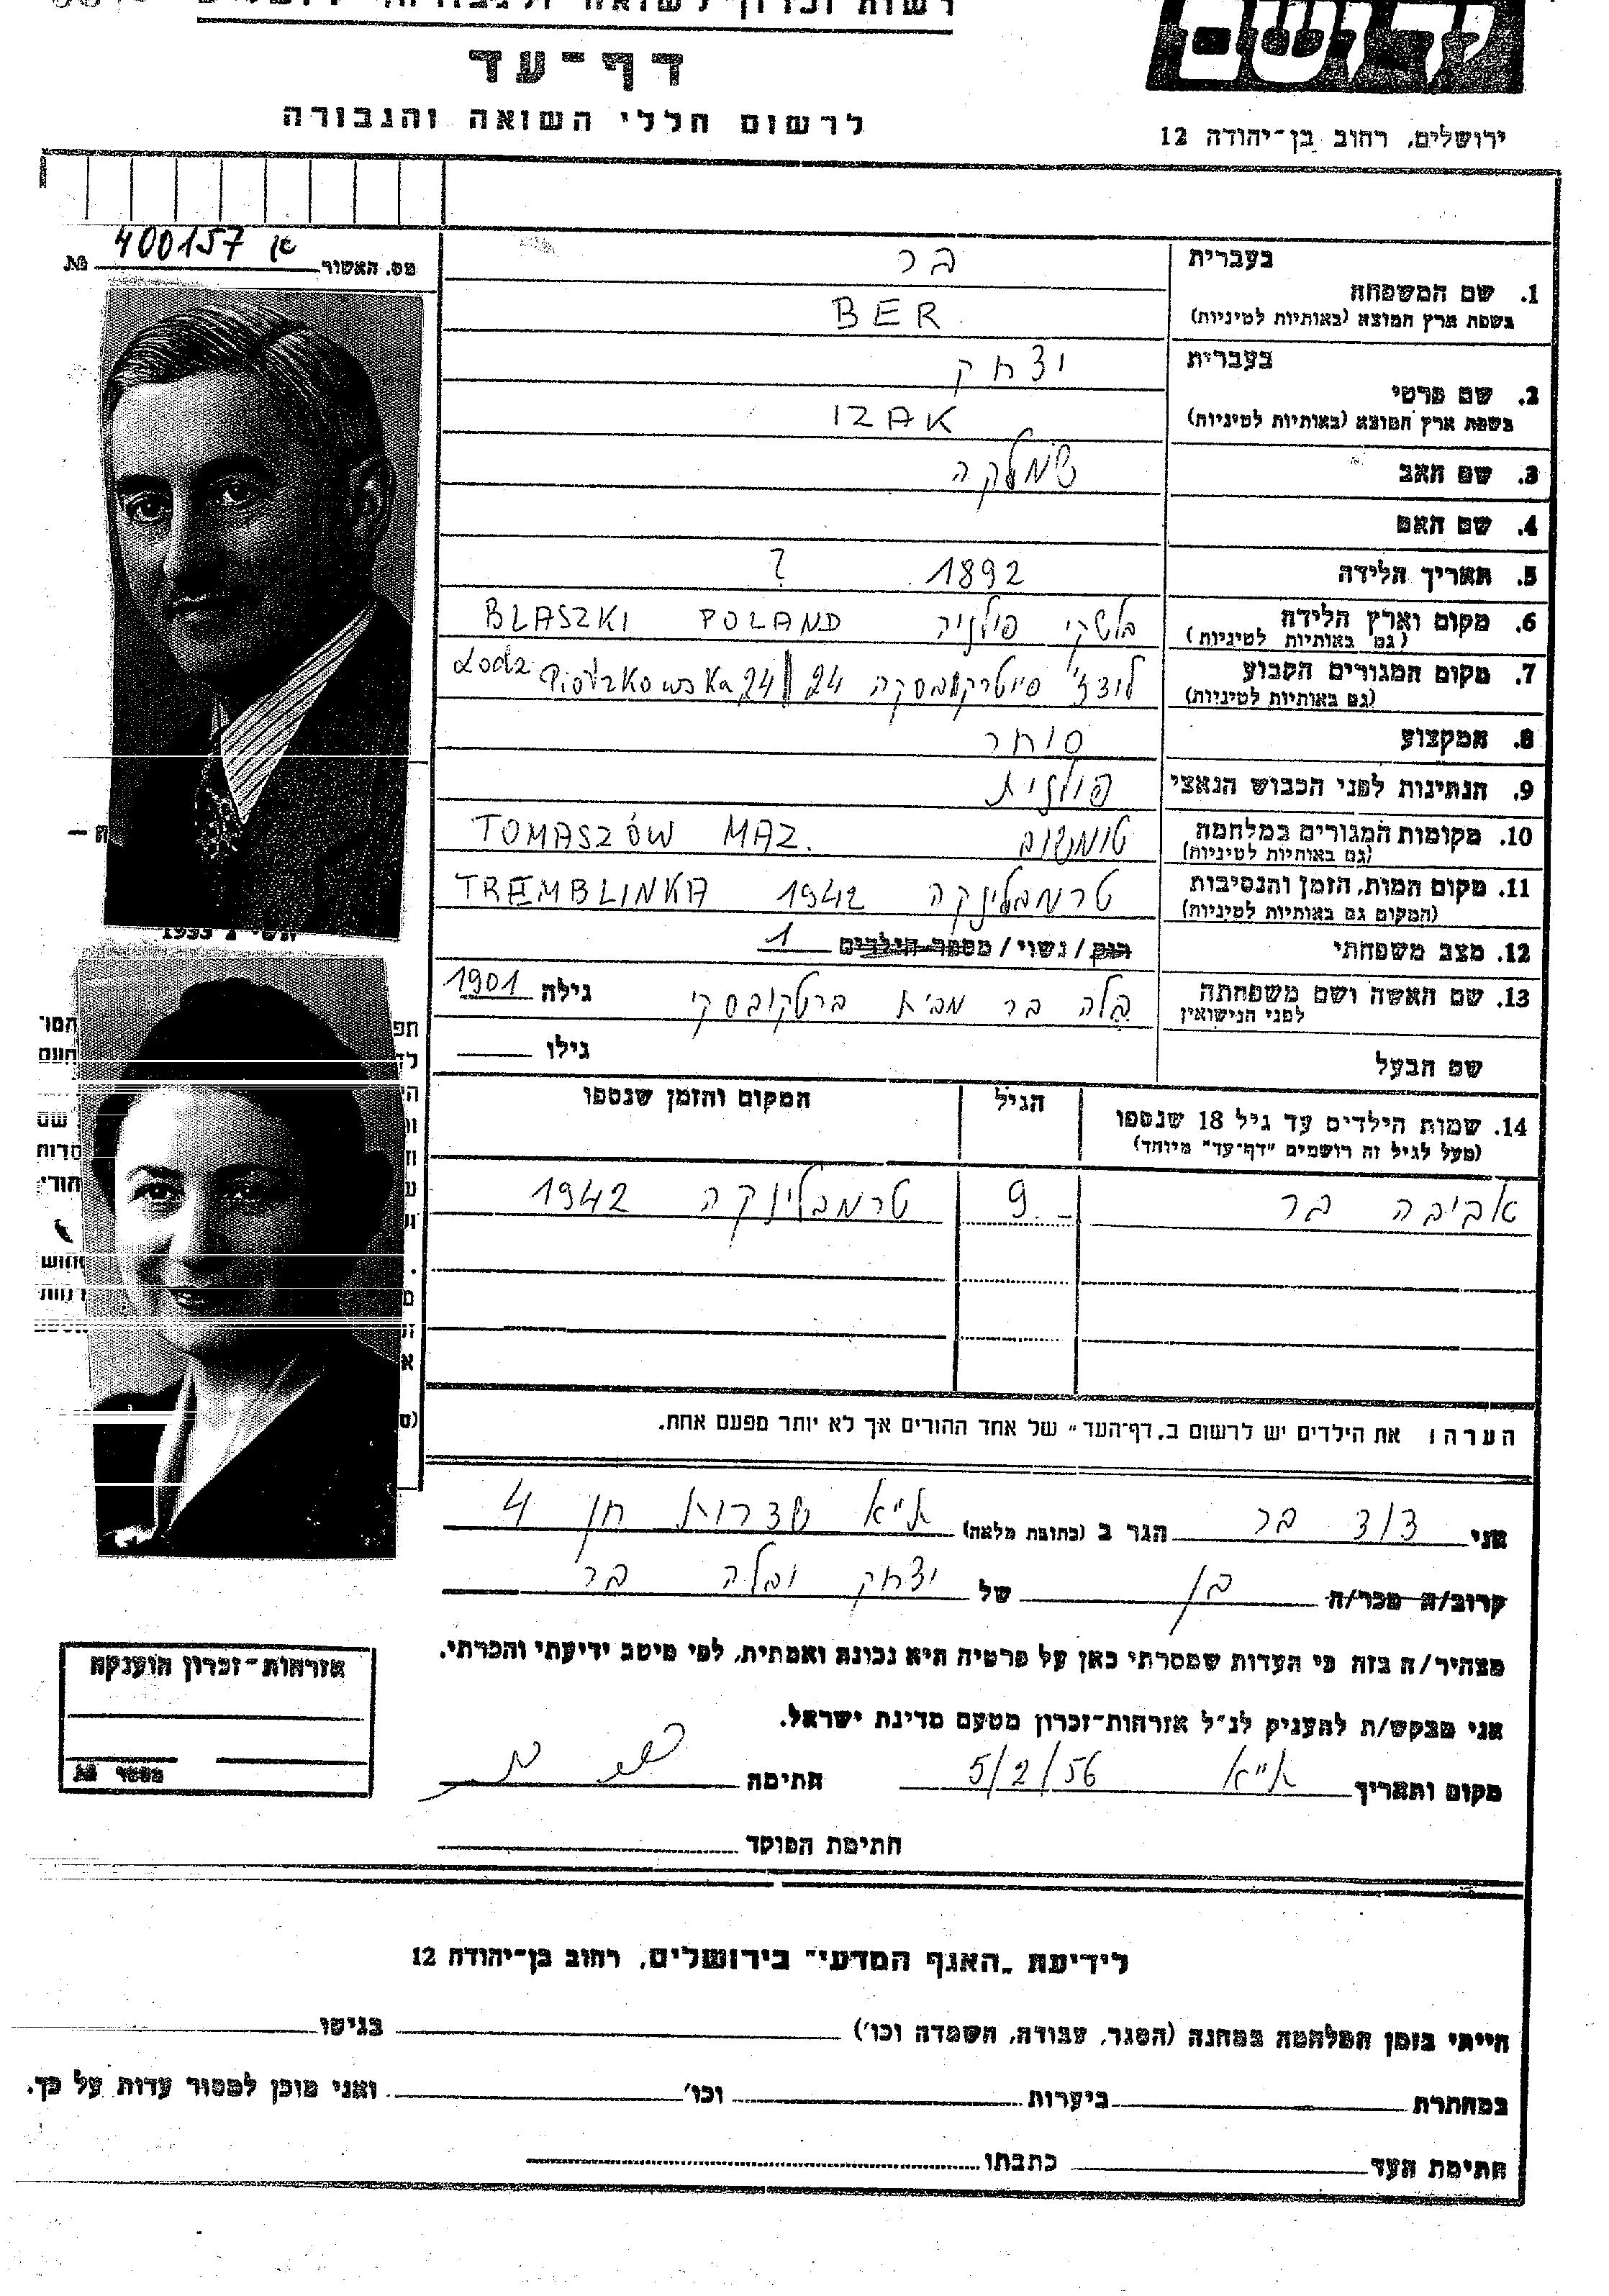 רשות זכרון לשואה ולגבורה, ירושלים
דף-עד
לרשום חללי השואה והגבורה
ירושלים, רחוב בן-יהודה 12
מס. האשור 400157 №
בעברית בר
1. שם המשפחה
בשפת ארץ המוצא (באותיות לטיניות) BER
בעברית יצחק
2. שם פרטי
בשפת ארץ המוצא (באותיות לטיניות) IZAK
3. שם האב שמלקה
4. שם האם
5. תאריך הלידה 1892 ?
6. מקום וארץ הלידה בלשקי פולניה BLASZKI POLAND
(גם באותיות לטיניות)
7. מקום המגורים הקבוע לודז' פיוטרקובסקה 24 Lodz Piotrkowska 24
(גם באותיות לטיניות)
8. המקצוע סוחר
9. הנתינות לפני הכבוש הנאצי פולנית
10. מקומות המגורים במלחמה טומשוב TOMASZÓW MAZ.
(גם באותיות לטיניות)
11. מקום המות, הזמן והנסיבות טרמבלינקה 1942 TREMBLINKA
(המקום גם באותיות לטיניות)
12. מצב משפחתי רוק / נשוי / מספר הילדים 1
13. שם האשה ושם משפחתה בלה בר מבית ברטקובסקי גילה 1901
לפני הנישואין
שם הבעל גילו
14. שמות הילדים עד גיל 18 שנספו הגיל המקום והזמן שנספו
(מעל לגיל זה רושמים "דף-עד" מיוחד)
אביבה בר 9 טרמבלינקה 1942
הערה: את הילדים יש לרשום ב"דף-העד" של אחד ההורים אך לא יותר מפעם אחת.
אני דוד בר הגר ב (כתובת מלאה) ת"א שדרות חן 4
קרוב/ה מכר/ה בן של יצחק ובלה בר
מצהיר/ה בזה כי העדות שמסרתי כאן על פרטיה היא נכונה ואמתית, לפי מיטב ידיעתי והכרתי.
אני מבקש/ת להעניק לנ"ל אזרחות-זכרון מטעם מדינת ישראל.
מקום ותאריך ת"א 5/2/56 חתימה
חתימת הפוקד
אזרחות-זכרון הוענקה
מספר №
לידיעת "האגף המדעי" בירושלים, רחוב בן-יהודה 12
הייתי בזמן המלחמה במחנה (הסגר, עבודה, השמדה וכו') בגיטו
במחתרת ביערות וכו' ואני מוכן למסור עדות על כך.
חתימת העד כתבתו